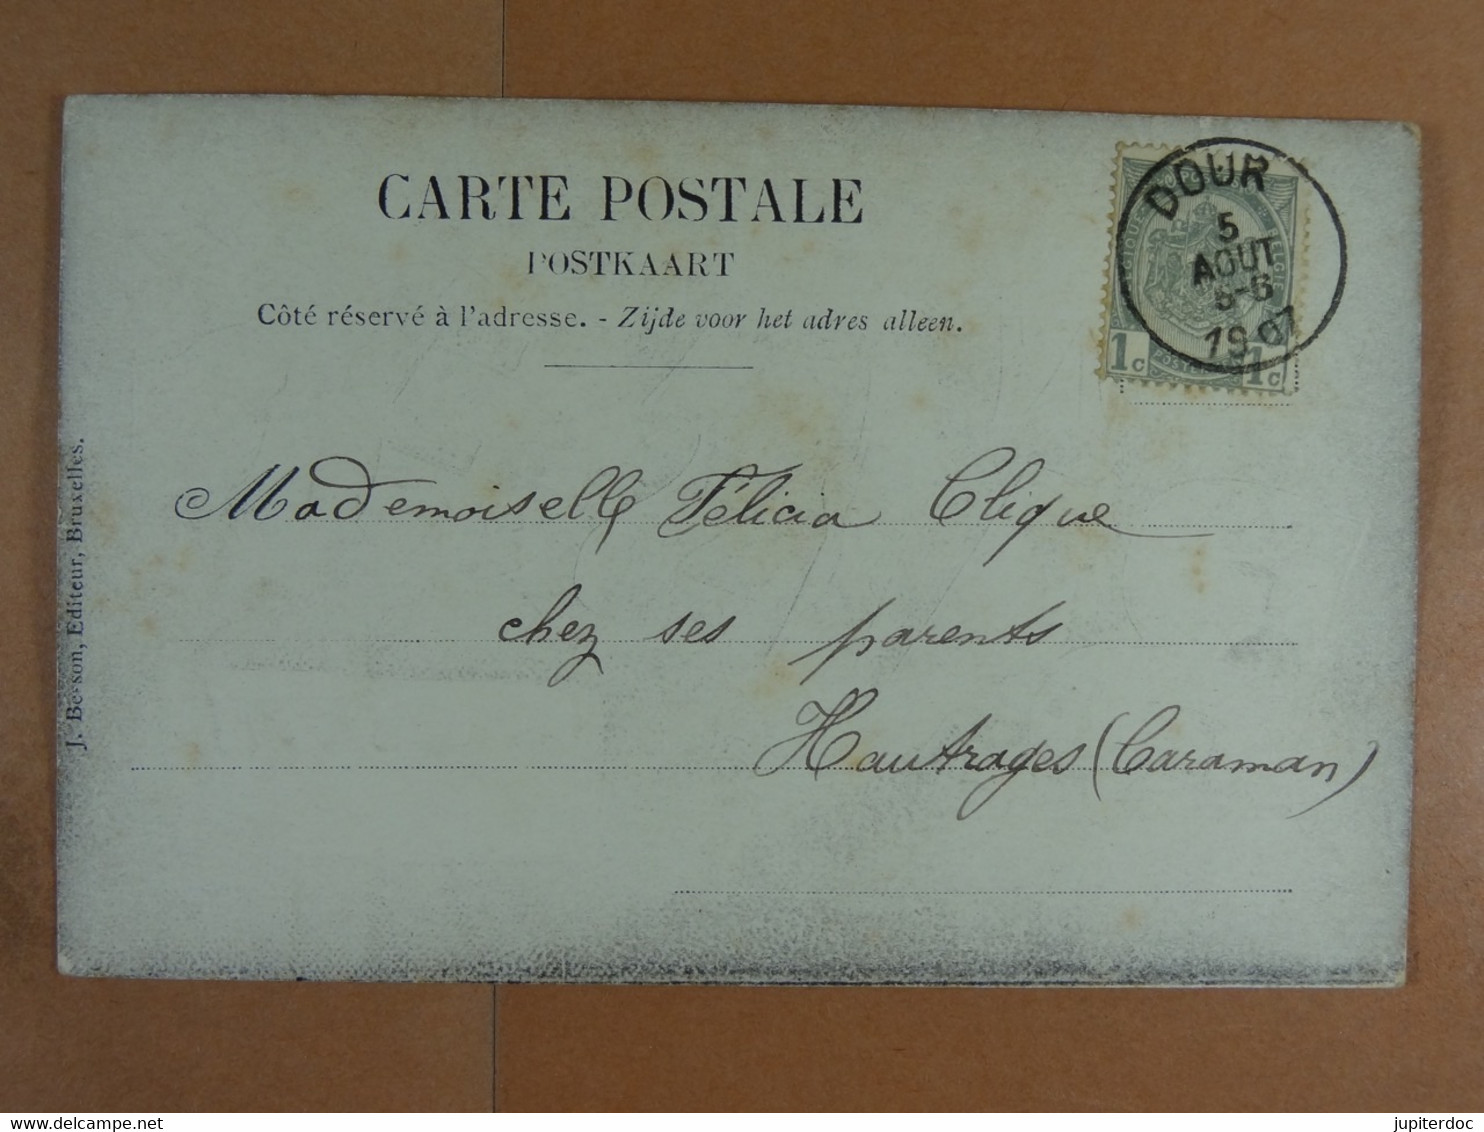 CARTE POSTALE
POSTKAART
Côté réservé à l'adresse. - Zijde voor het adres alleen.
DOUR
5
AOUT
5-6
1907
1c POSTE 1c
Mademoiselle Félicia Clique
chez ses parents
Hautrages (Caraman)
J. Besson, Editeur, Bruxelles.
jupiterdoc